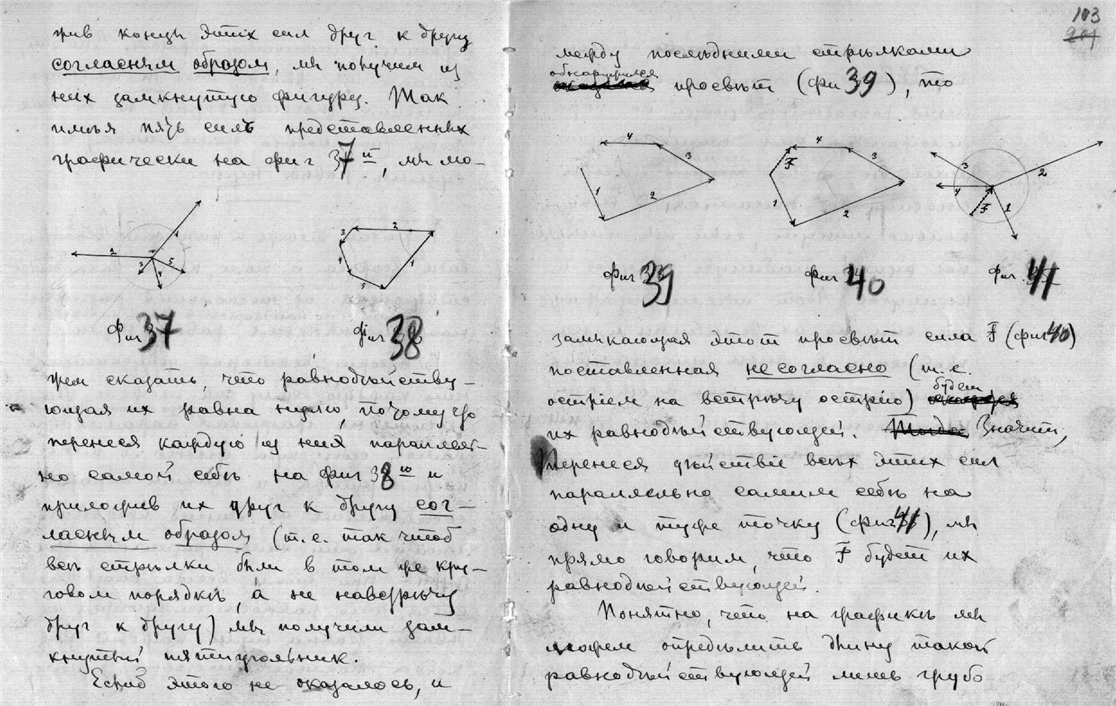 жив концы этих сил друг к другу
согласным образом, мы получим из
них замкнутую фигуру. Так
имея пять силъ представленных
графически на фиг 37й, мы мо-
1
2
3
4
5
фиг 37
4
3
2
5
1
фиг 38
жем сказать, что равнодѣйству-
ющая их равна нулю, потому что
перенеся каждую из них параллель-
но самой себѣ на фиг 38ю и
приложив их друг к другу сог-
ласным образом (т. е. так чтоб
все стрѣлки были в том же кру-
говом порядкѣ, а не навстрѣчу
друг к другу) мы получили зам-
кнутый пятиугольник.
Если б этого не оказалось, и
103
201
между послѣдними стрѣлками
обнаружился
просвѣт (фи 39), то
4
3
1
2
фиг 39
4
F
3
1
2
фиг 40
3
2
4
F
1
фиг 41
замыкающая этот просвѣт сила F (фиг 40)
поставленная несогласно (т. е.
остріем на встрѣчу острію) будет
их равнодѣйствующей. Тогда Значит,
перенеся дѣйствіе всѣх этих сил
параллельно самим себѣ на
одну и туже точку (фиг 41), мы
прямо говорим, что F будет их
равнодѣйствующей.
Понятно, что на графикѣ мы
можем опредѣлить длину такой
равнодѣйствующей лишь грубо